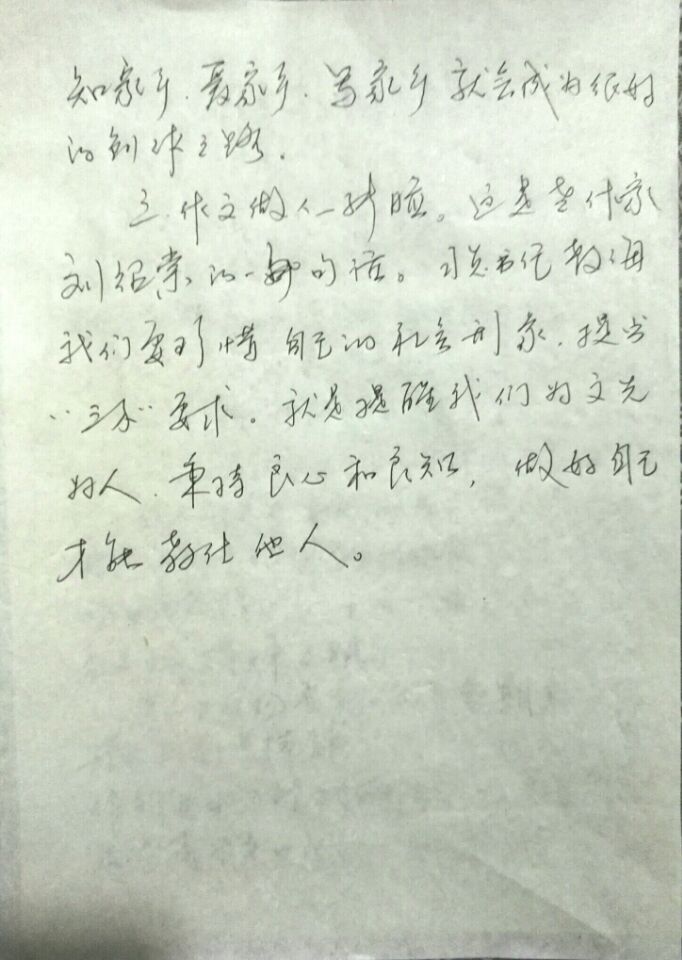 知家乡.爱家乡.写家乡就会成为很好
的创作之路.
三.作文做人一样腔。这是老作家
刘绍棠的一句话。习总书记教海
我们要珍惜自己的社会形象.提出
"三本"要求。就是提醒我们为文先
为人.秉持良心和良知,做好自己
才能教化他人。